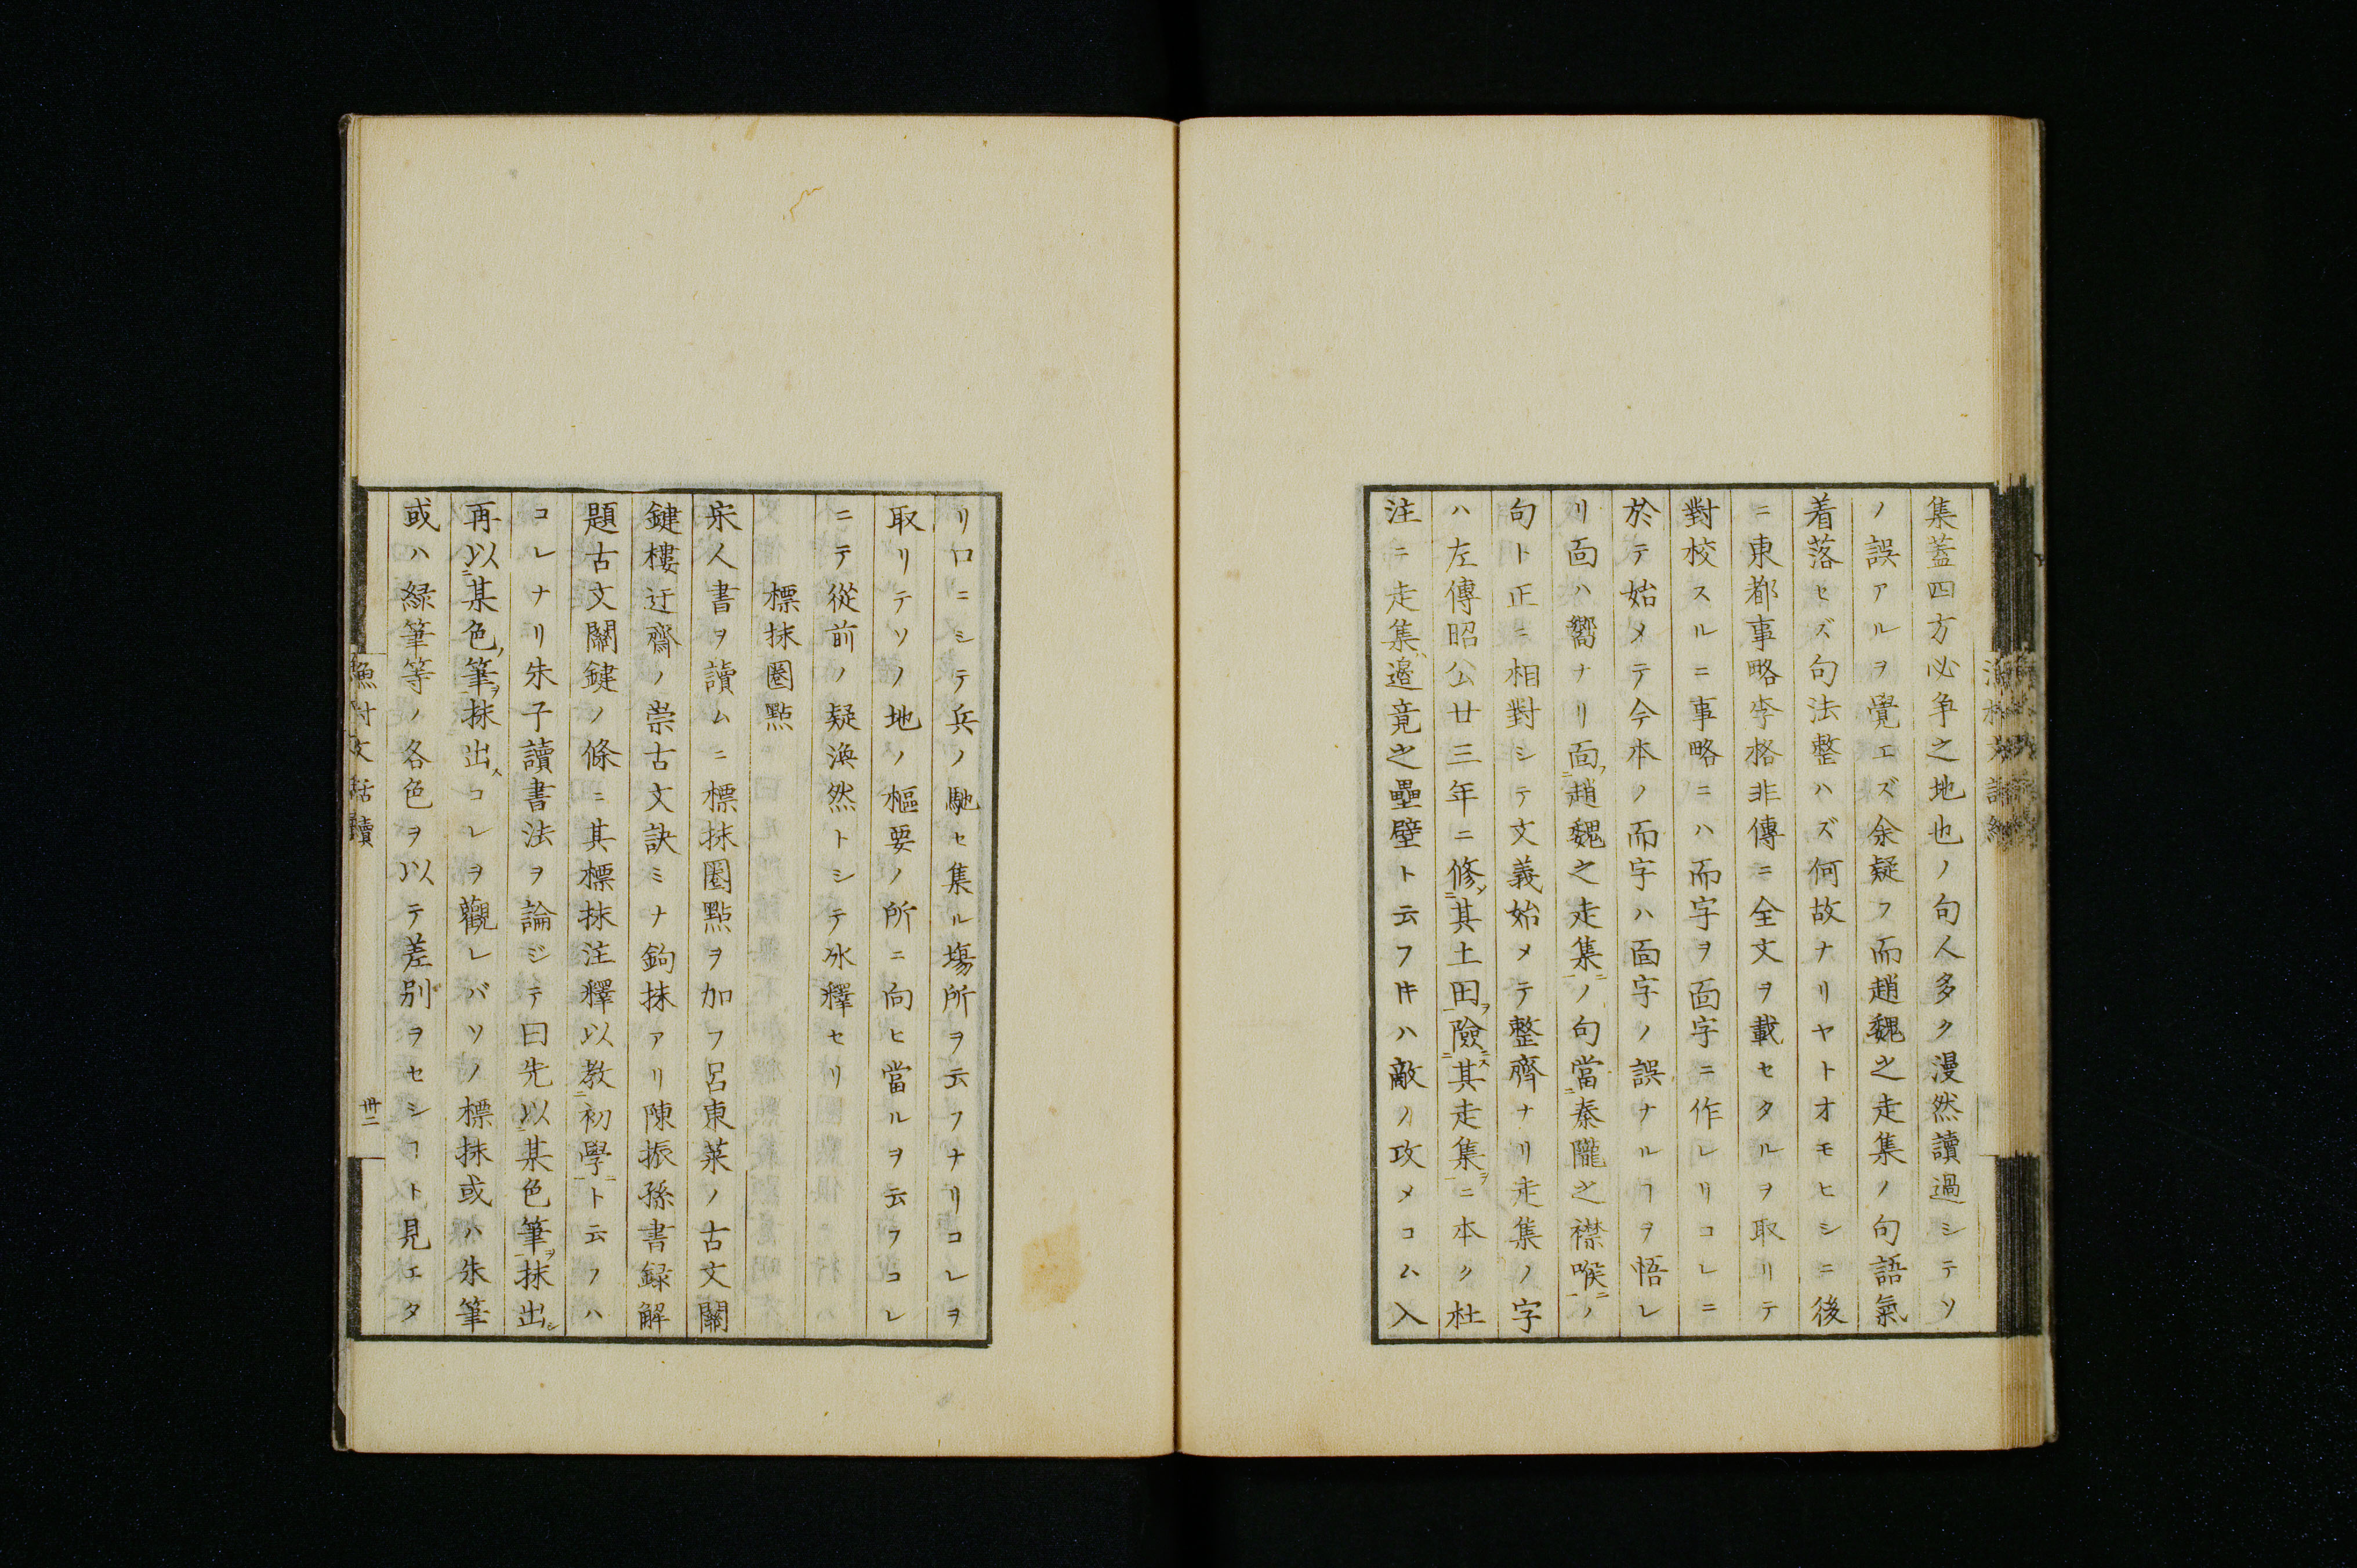 集蓋四方必争之地也ノ句人多ク漫然讀過シテソ
ノ誤アルヲ覺エズ余疑フ而趙魏之走集ノ句語氣
着落セズ句法整ハズ何故ナリヤトオモヒシニ後
ニ東都事略李格非傳ニ全文ヲ載セタルヲ取リテ
對校スルニ事略ニハ而字ヲ面字ニ作レリコレニ
於テ始メテ今本ノ而字ハ面字ノ誤ナルヿヲ悟レ
リ面ハ嚮ナリ面趙魏之走集ノ句當秦隴之襟喉ノ
句ト正ニ相對シテ文義始メテ整齊ナリ走集ノ字
ハ左傳昭公廿三年ニ修其土田險其走集ニ本ク杜
注ニ走集邉竟之壘壁ト云フ𪜈ハ敵ノ攻メコム入
リ口ニシテ兵ノ馳セ集ル塲所ヲ云フナリコレヲ
取リテソノ地ノ樞要ノ所ニ向ヒ當ルヲ云フコレ
ニテ從前ノ疑渙然トシテ冰釋セリ
標抹圈點
宋人書ヲ讀ムニ標抹圏點ヲ加フ呂東萊ノ古文關
鍵樓迂齋ノ崇古文訣ミナ鉤抹アリ陳振孫書録解
題古文關鍵ノ條ニ其標抹注釋以教初學ト云フハ
コレナリ朱子讀書法ヲ論ジテ曰先以某色筆抹出
再以某色筆抹出コレヲ觀レバソノ標抹或ハ朱筆
或ハ緑筆等ノ各色ヲ以テ差別ヲセシヿト見エタ
漁村文話續
卅二